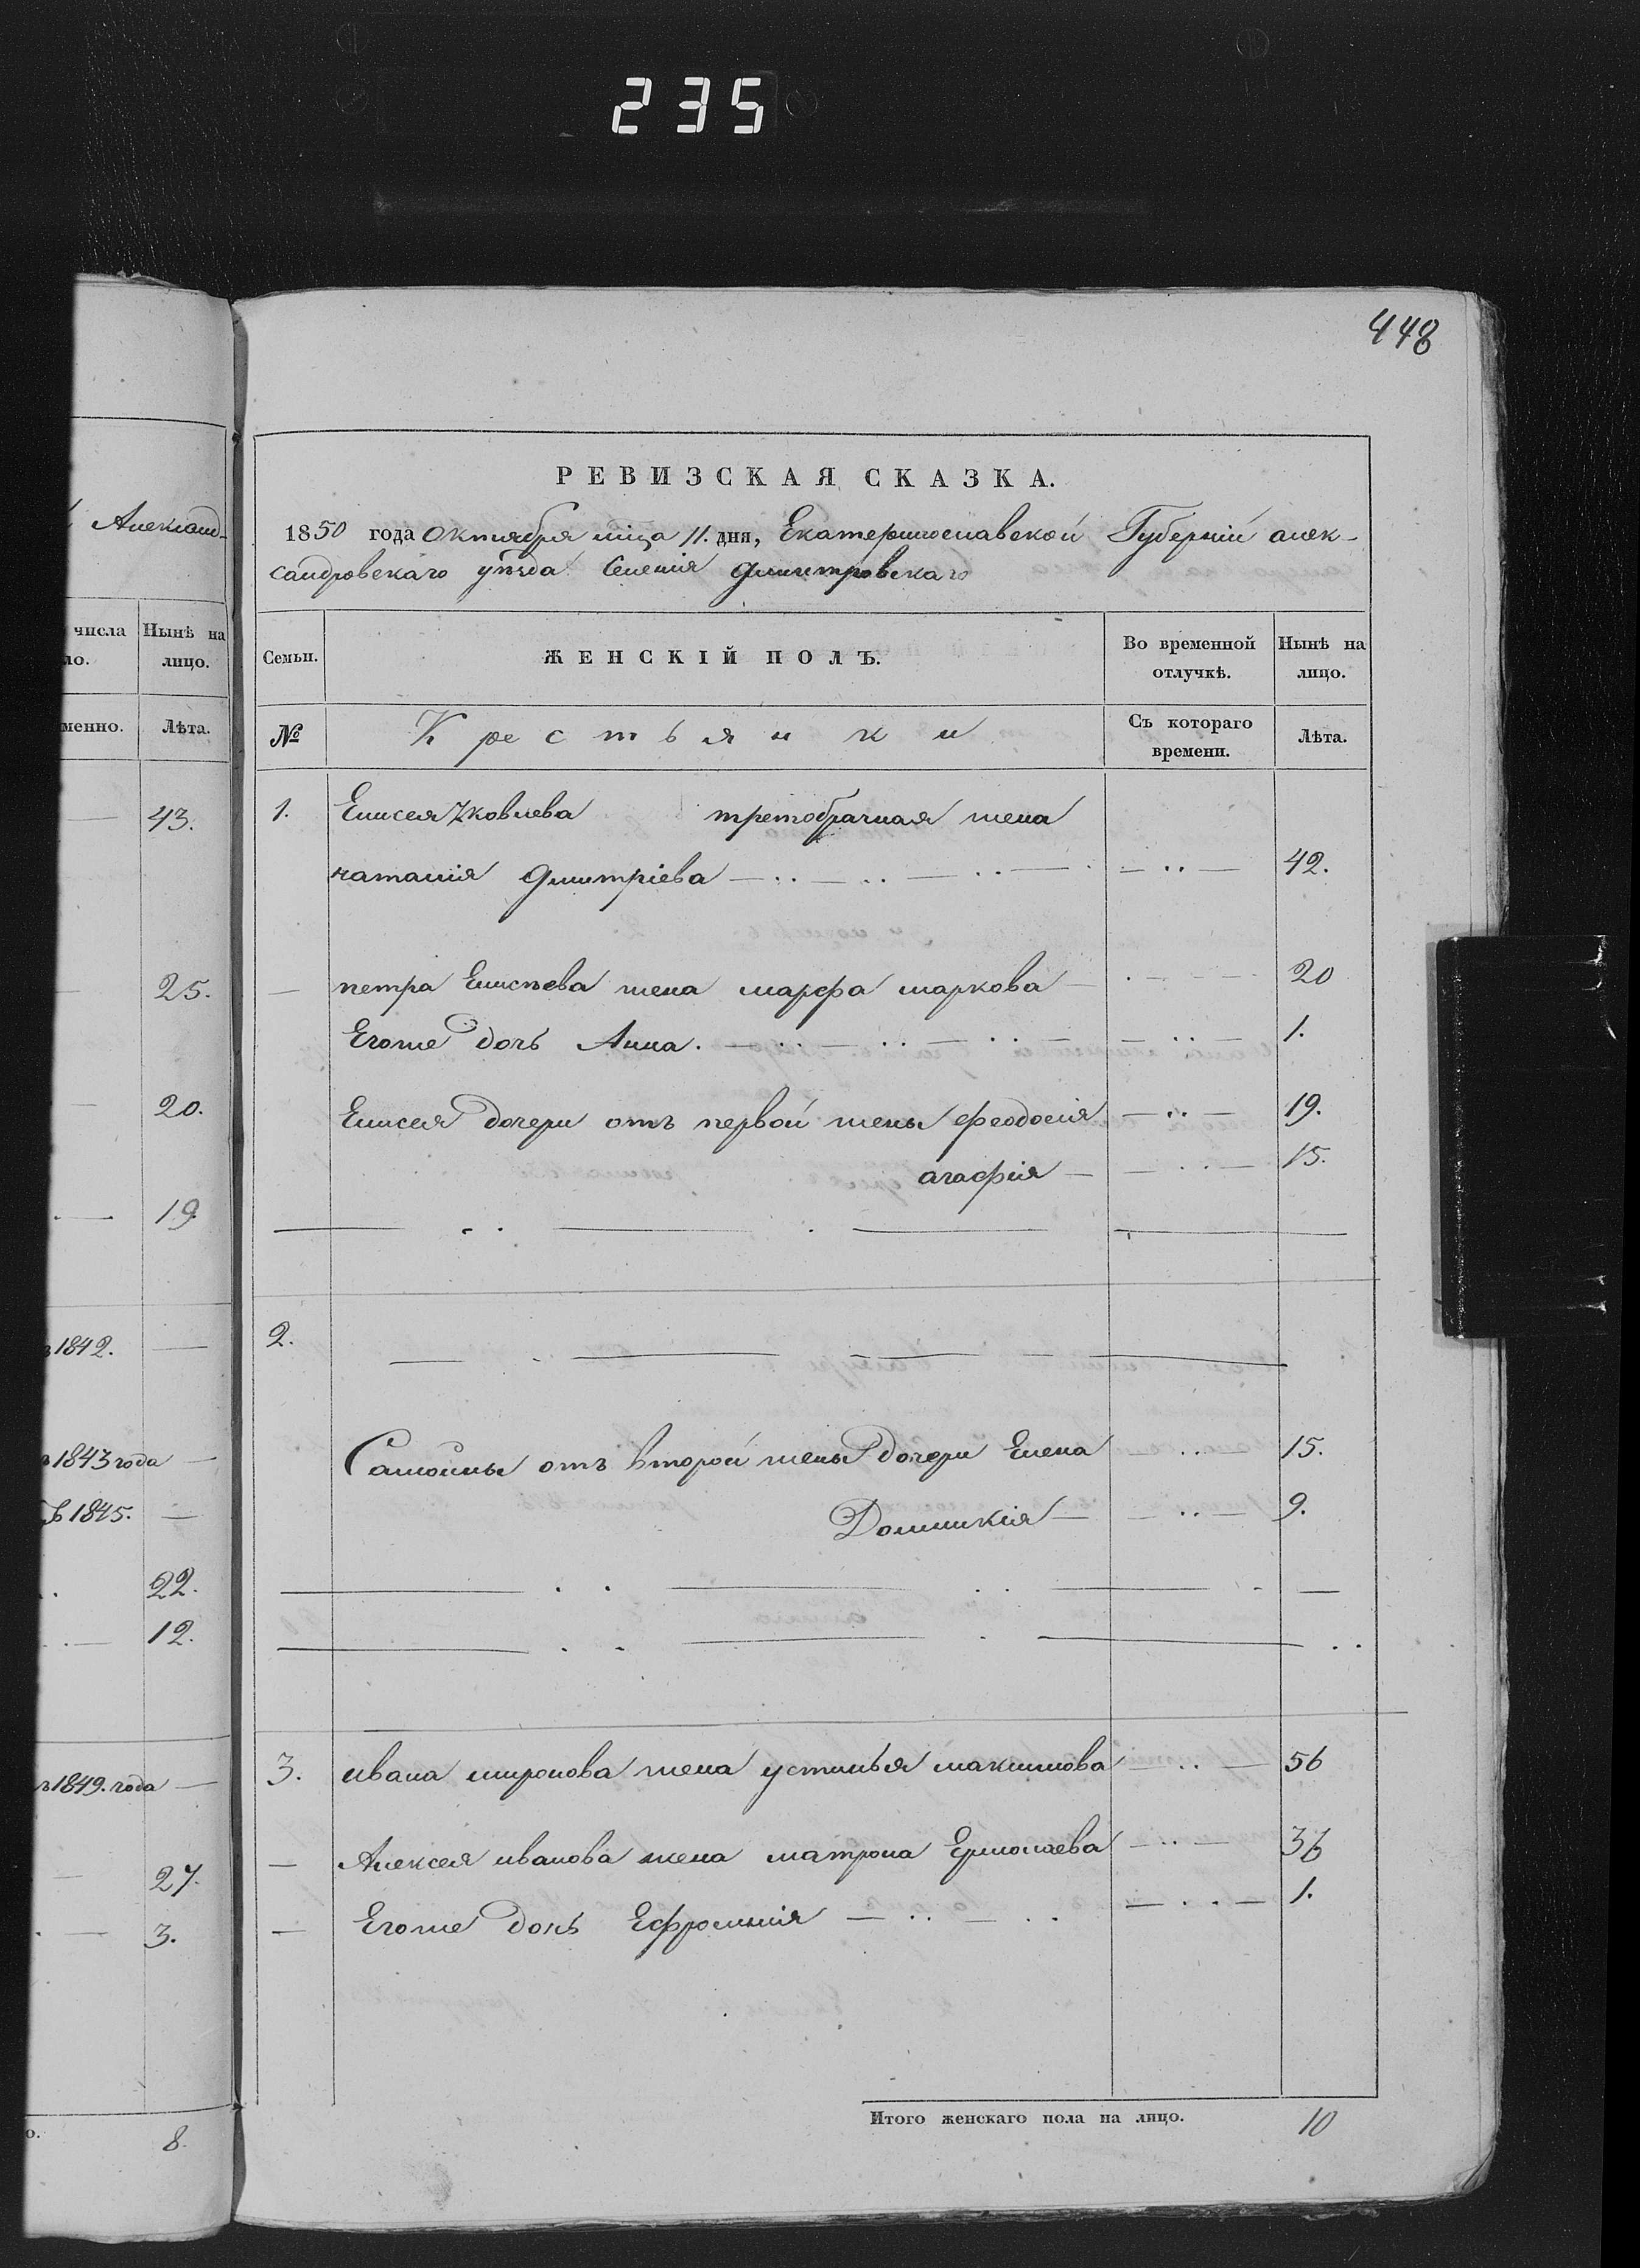 235
448
Александ-
числа
Нынѣ на
ло.
лицо.
менно.
Лѣта.
43.
25.
20.
19
1842.
1843 года
1845.
22.
12.
1849. года
27.
3.
8.
РЕВИЗСКАЯ СКАЗКА.
1850 года Октября мца 11. дня, Екатеринославской Губерніи алек-
сандровскаго уѣзда Селенія Дмитровскаго
Семьи. ЖЕНСКІЙ ПОЛЪ. Во временной отлучкѣ. Нынѣ на лицо.
№ Крестьянки Съ котораго времени. Лѣта.
1. Елисея Яковлева третобрачная жена
наталія Дмитріева 42.
— петра Елисѣева жена марфа маркова 20
Егоже дочь Анна. 1.
Елисея дочери отъ первой жены феодосія 19.
агафія 15.
2.
Самойлы отъ второй жены дочери Елена 15.
Домникія 9.
3. ивана миронова жена устинья максимова 56
— Алексея иванова жена матрона Ермолаева 36
— Егоже дочь Ефросинія 1.
Итого женскаго пола на лицо. 10